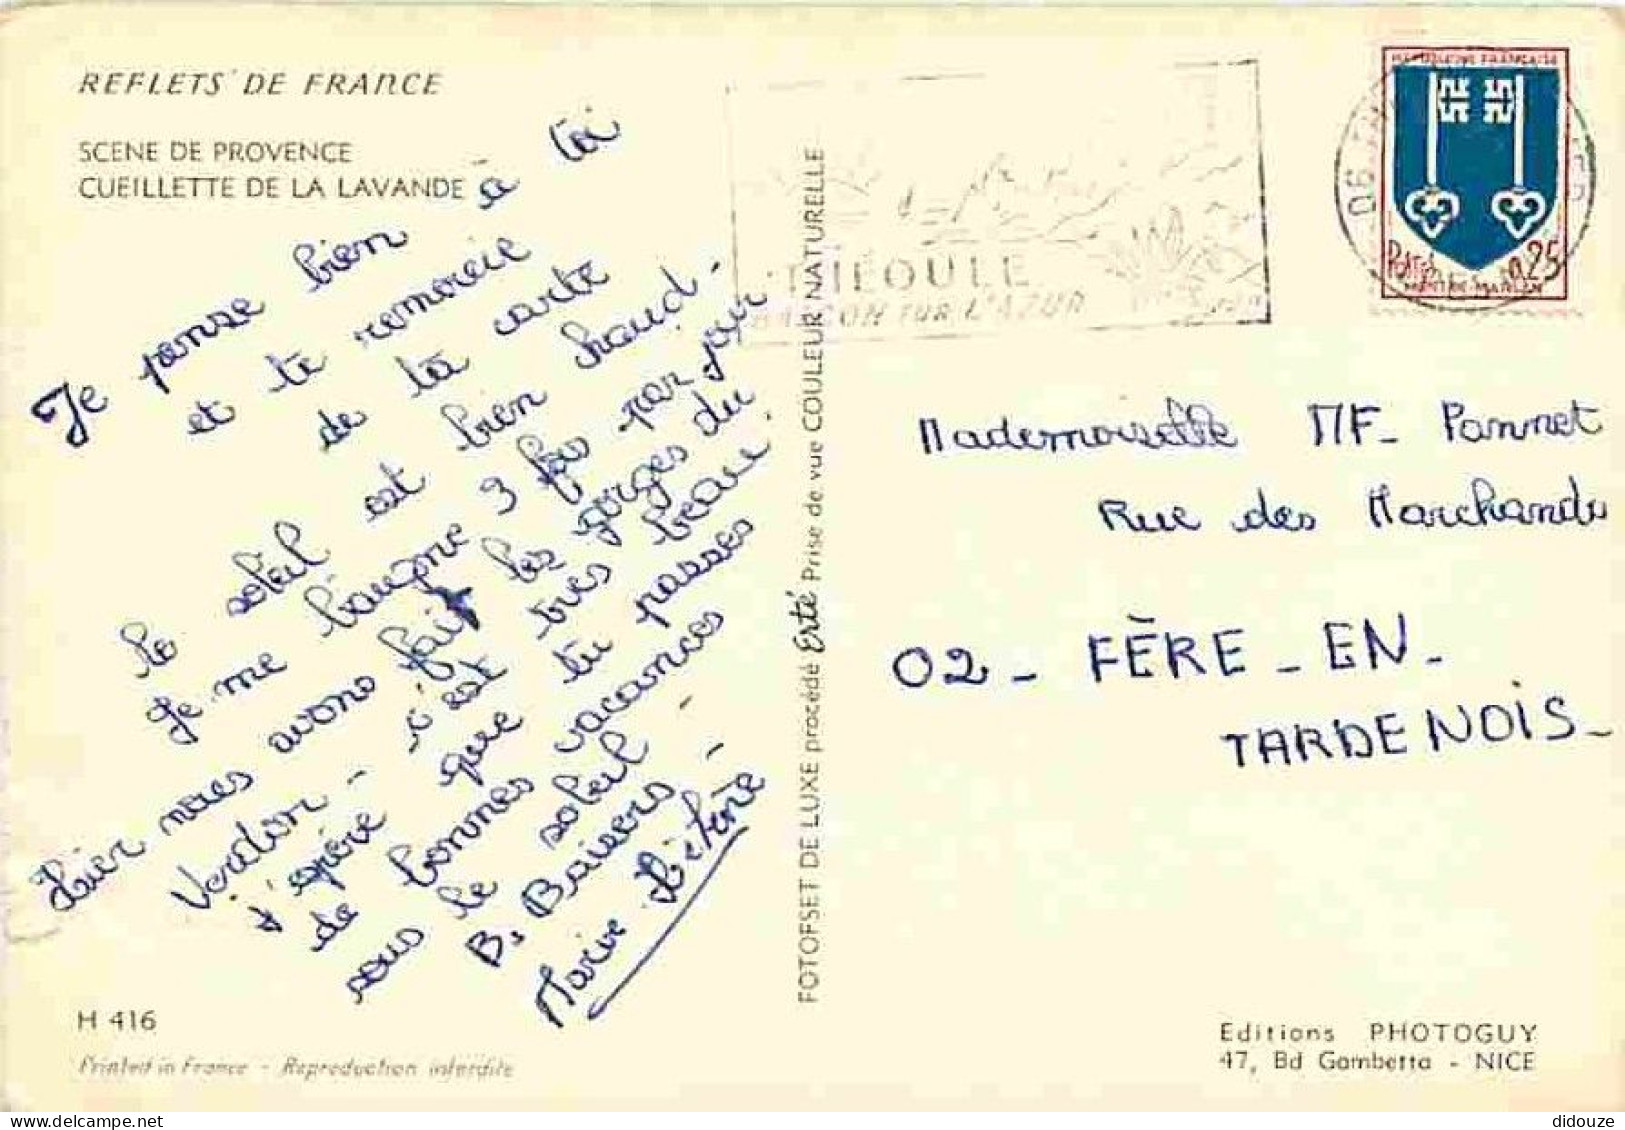 REFLETS DE FRANCE
SCENE DE PROVENCE
CUEILLETTE DE LA LAVANDE
Je pense bien à toi
et te remercie
de ta carte
le soleil est bien chaud -
Je me baigne 3 fois par jour
Hier nous avons fait les gorges du
Verdon - c'est très beau.
J'espère que tu passes
de bonnes vacances
sous le soleil -
B. Baisers -
Marie Hélène
H 416
Printed in France - Reproduction interdite
FOTOFSET DE LUXE procédé Erté Prise de vue COULEUR NATURELLE
THÉOULE
BALCON SUR L'AZUR
06
REPUBLIQUE FRANÇAISE
0,25
MONT-DE-MARSAN
Mademoiselle MF- Pannet
Rue des Marchands
02 - FÈRE - EN -
TARDENOIS -
Editions PHOTOGUY
47, Bd Gambetta - NICE
didouze